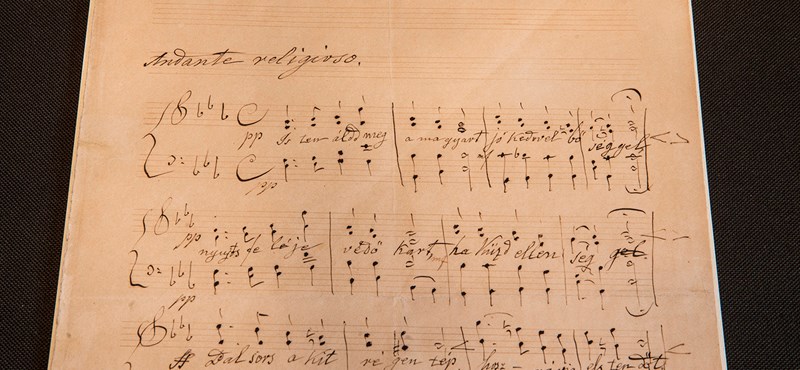 Andante religioso.
pp Is ten áldd meg a magyart jó kedvvel bő séggel
pp
pp nyujts fe léje védő kart, ha küzd ellen ség gel
pp
ff Bal sors a kit ré gen tép